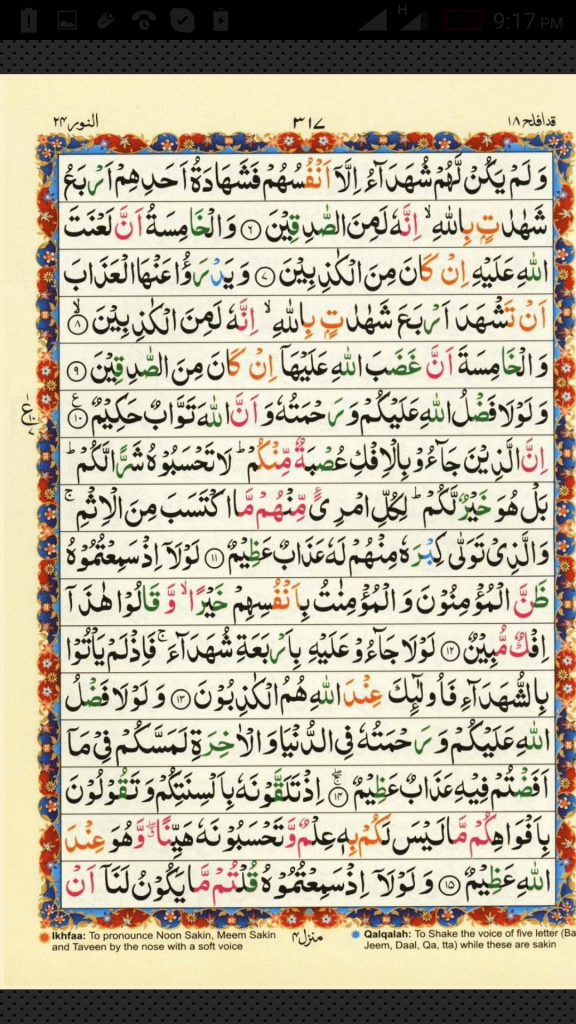 H 7% 9:17 PM
قدافلح ١٨ ٣١٧ النور ٢٤
وَ لَمۡ یَکُنۡ لَّهُمۡ شُهَدَآءُ اِلَّاۤ اَنۡفُسُهُمۡ فَشَهَادَةُ اَحَدِهِمۡ اَرۡبَعُ
شَهٰدٰتٍۭ بِاللّٰهِ ۙ اِنَّهٗ لَمِنَ الصّٰدِقِیۡنَ ﴿۶﴾ وَ الۡخَامِسَةُ اَنَّ لَعۡنَتَ
اللّٰهِ عَلَیۡهِ اِنۡ کَانَ مِنَ الۡکٰذِبِیۡنَ ﴿۷﴾ وَ یَدۡرَؤُا عَنۡهَا الۡعَذَابَ
اَنۡ تَشۡهَدَ اَرۡبَعَ شَهٰدٰتٍۭ بِاللّٰهِ ۙ اِنَّهٗ لَمِنَ الۡکٰذِبِیۡنَ ۙ﴿۸﴾
وَ الۡخَامِسَةَ اَنَّ غَضَبَ اللّٰهِ عَلَیۡهَاۤ اِنۡ کَانَ مِنَ الصّٰدِقِیۡنَ ﴿۹﴾
وَ لَوۡ لَا فَضۡلُ اللّٰهِ عَلَیۡکُمۡ وَ رَحۡمَتُهٗ وَ اَنَّ اللّٰهَ تَوَّابٌ حَکِیۡمٌ ﴿۱۰﴾ ع
اِنَّ الَّذِیۡنَ جَآءُوۡ بِالۡاِفۡکِ عُصۡبَةٌ مِّنۡکُمۡ ؕ لَا تَحۡسَبُوۡهُ شَرًّا لَّکُمۡ ؕ
بَلۡ هُوَ خَیۡرٌ لَّکُمۡ ؕ لِکُلِّ امۡرِیًٴ مِّنۡهُمۡ مَّا اکۡتَسَبَ مِنَ الۡاِثۡمِ ۚ
وَ الَّذِیۡ تَوَلّٰی کِبۡرَهٗ مِنۡهُمۡ لَهٗ عَذَابٌ عَظِیۡمٌ ﴿۱۱﴾ لَوۡ لَاۤ اِذۡ سَمِعۡتُمُوۡهُ
ظَنَّ الۡمُؤۡمِنُوۡنَ وَ الۡمُؤۡمِنٰتُ بِاَنۡفُسِهِمۡ خَیۡرًا ۙ وَّ قَالُوۡا هٰذَاۤ
اِفۡکٌ مُّبِیۡنٌ ﴿۱۲﴾ لَوۡ لَا جَآءُوۡ عَلَیۡهِ بِاَرۡبَعَةِ شُهَدَآءَ ۚ فَاِذۡ لَمۡ یَاۡتُوۡا
بِالشُّهَدَآءِ فَاُولٰٓئِکَ عِنۡدَ اللّٰهِ هُمُ الۡکٰذِبُوۡنَ ﴿۱۳﴾ وَ لَوۡ لَا فَضۡلُ
اللّٰهِ عَلَیۡکُمۡ وَ رَحۡمَتُهٗ فِی الدُّنۡیَا وَ الۡاٰخِرَةِ لَمَسَّکُمۡ فِیۡ مَاۤ
اَفَضۡتُمۡ فِیۡهِ عَذَابٌ عَظِیۡمٌ ﴿۱۴﴾ اِذۡ تَلَقَّوۡنَهٗ بِاَلۡسِنَتِکُمۡ وَ تَقُوۡلُوۡنَ
بِاَفۡوَاهِکُمۡ مَّا لَیۡسَ لَکُمۡ بِهٖ عِلۡمٌ وَّ تَحۡسَبُوۡنَهٗ هَیِّنًا ۖ وَّ هُوَ عِنۡدَ
اللّٰهِ عَظِیۡمٌ ﴿۱۵﴾ وَ لَوۡ لَاۤ اِذۡ سَمِعۡتُمُوۡهُ قُلۡتُمۡ مَّا یَکُوۡنُ لَنَاۤ اَنۡ
Ikhfaa: To pronounce Noon Sakin, Meem Sakin
and Taveen by the nose with a soft voice
منزل ٤
Qalqalah: To Shake the voice of five letter (Ba
Jeem, Daal, Qa, tta) while these are sakin